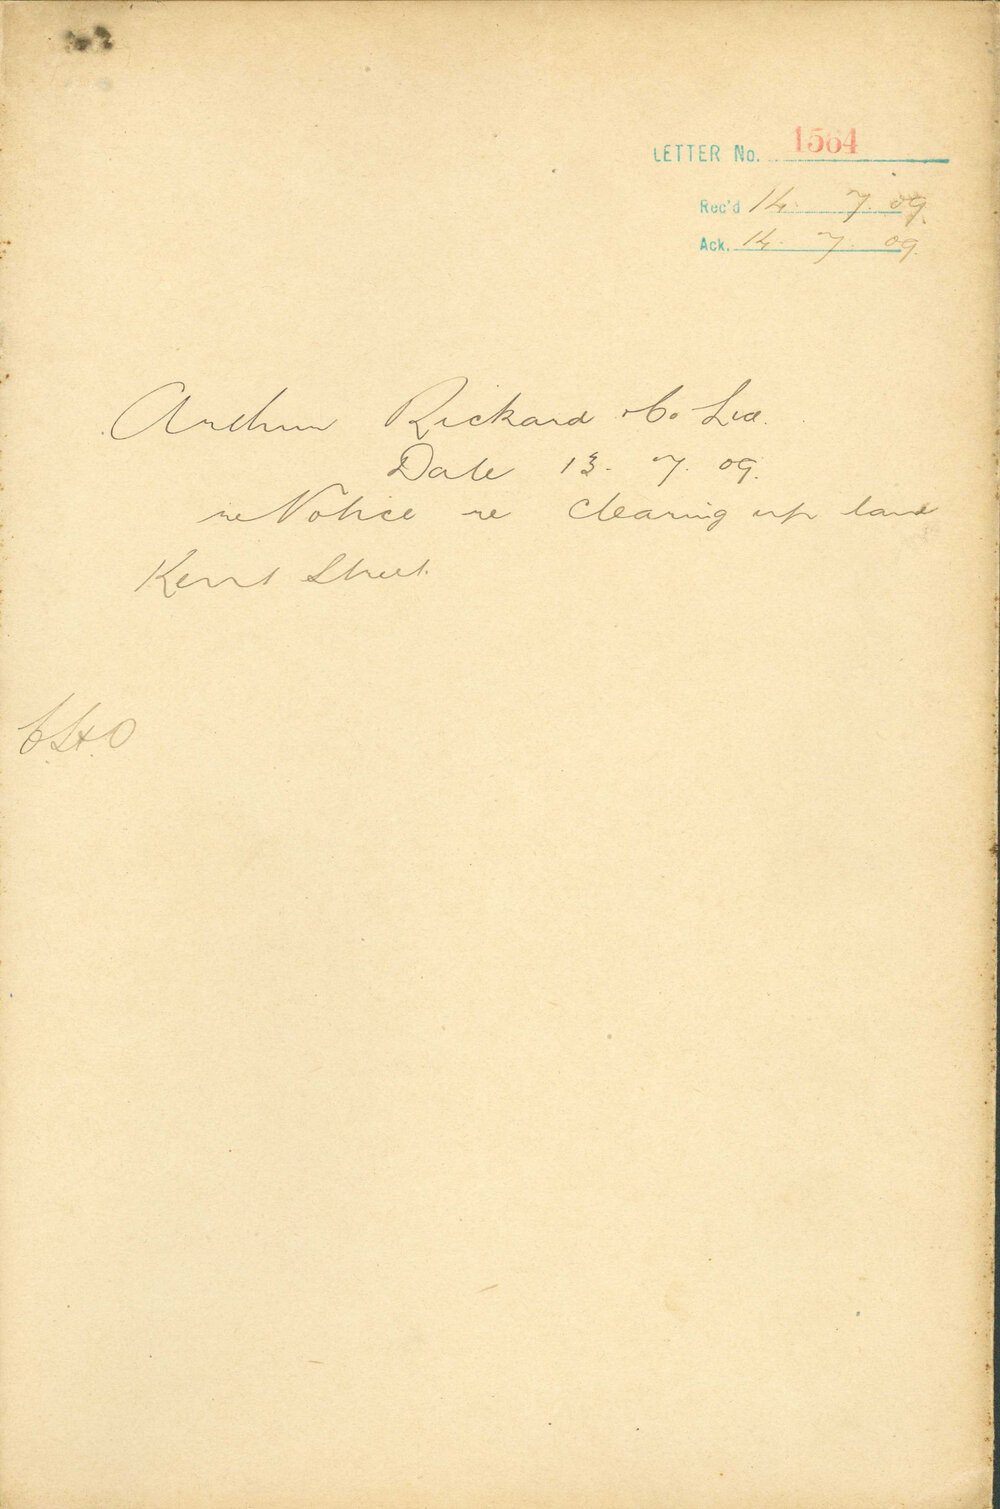 LETTER No. 1564
Rec'd 14. 7. 09.
Ack. 14. 7. 09.
Arthur Rickard & Co Ltd.
Date 13. 7. 09.
re Notice re Clearing up land
Kent Street.